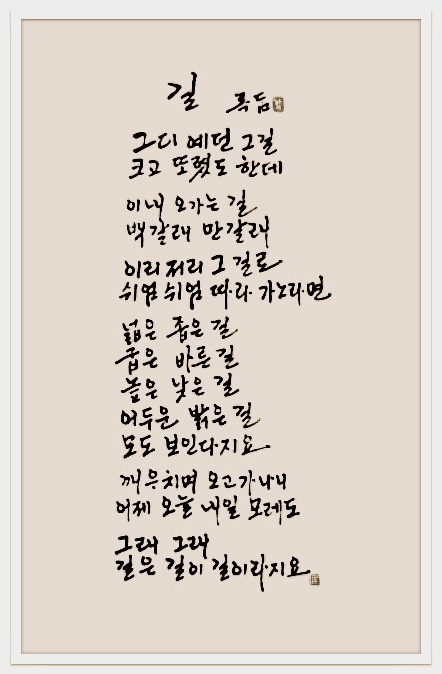 길
그디 예던 그길
크고 또렸도 한데
이내 오가는 길
백갈래 만갈래
이리저리 그 길로
쉬엄 쉬엄 따라 가노라면
넓은 좁은 길
굽은 바른 길
높은 낮은 길
어두운 밝은 길
모도 보인다지요
깨우치며 오고가나니
어제 오늘 내일 모레도
그래 그래
길은 길이 길이라지요